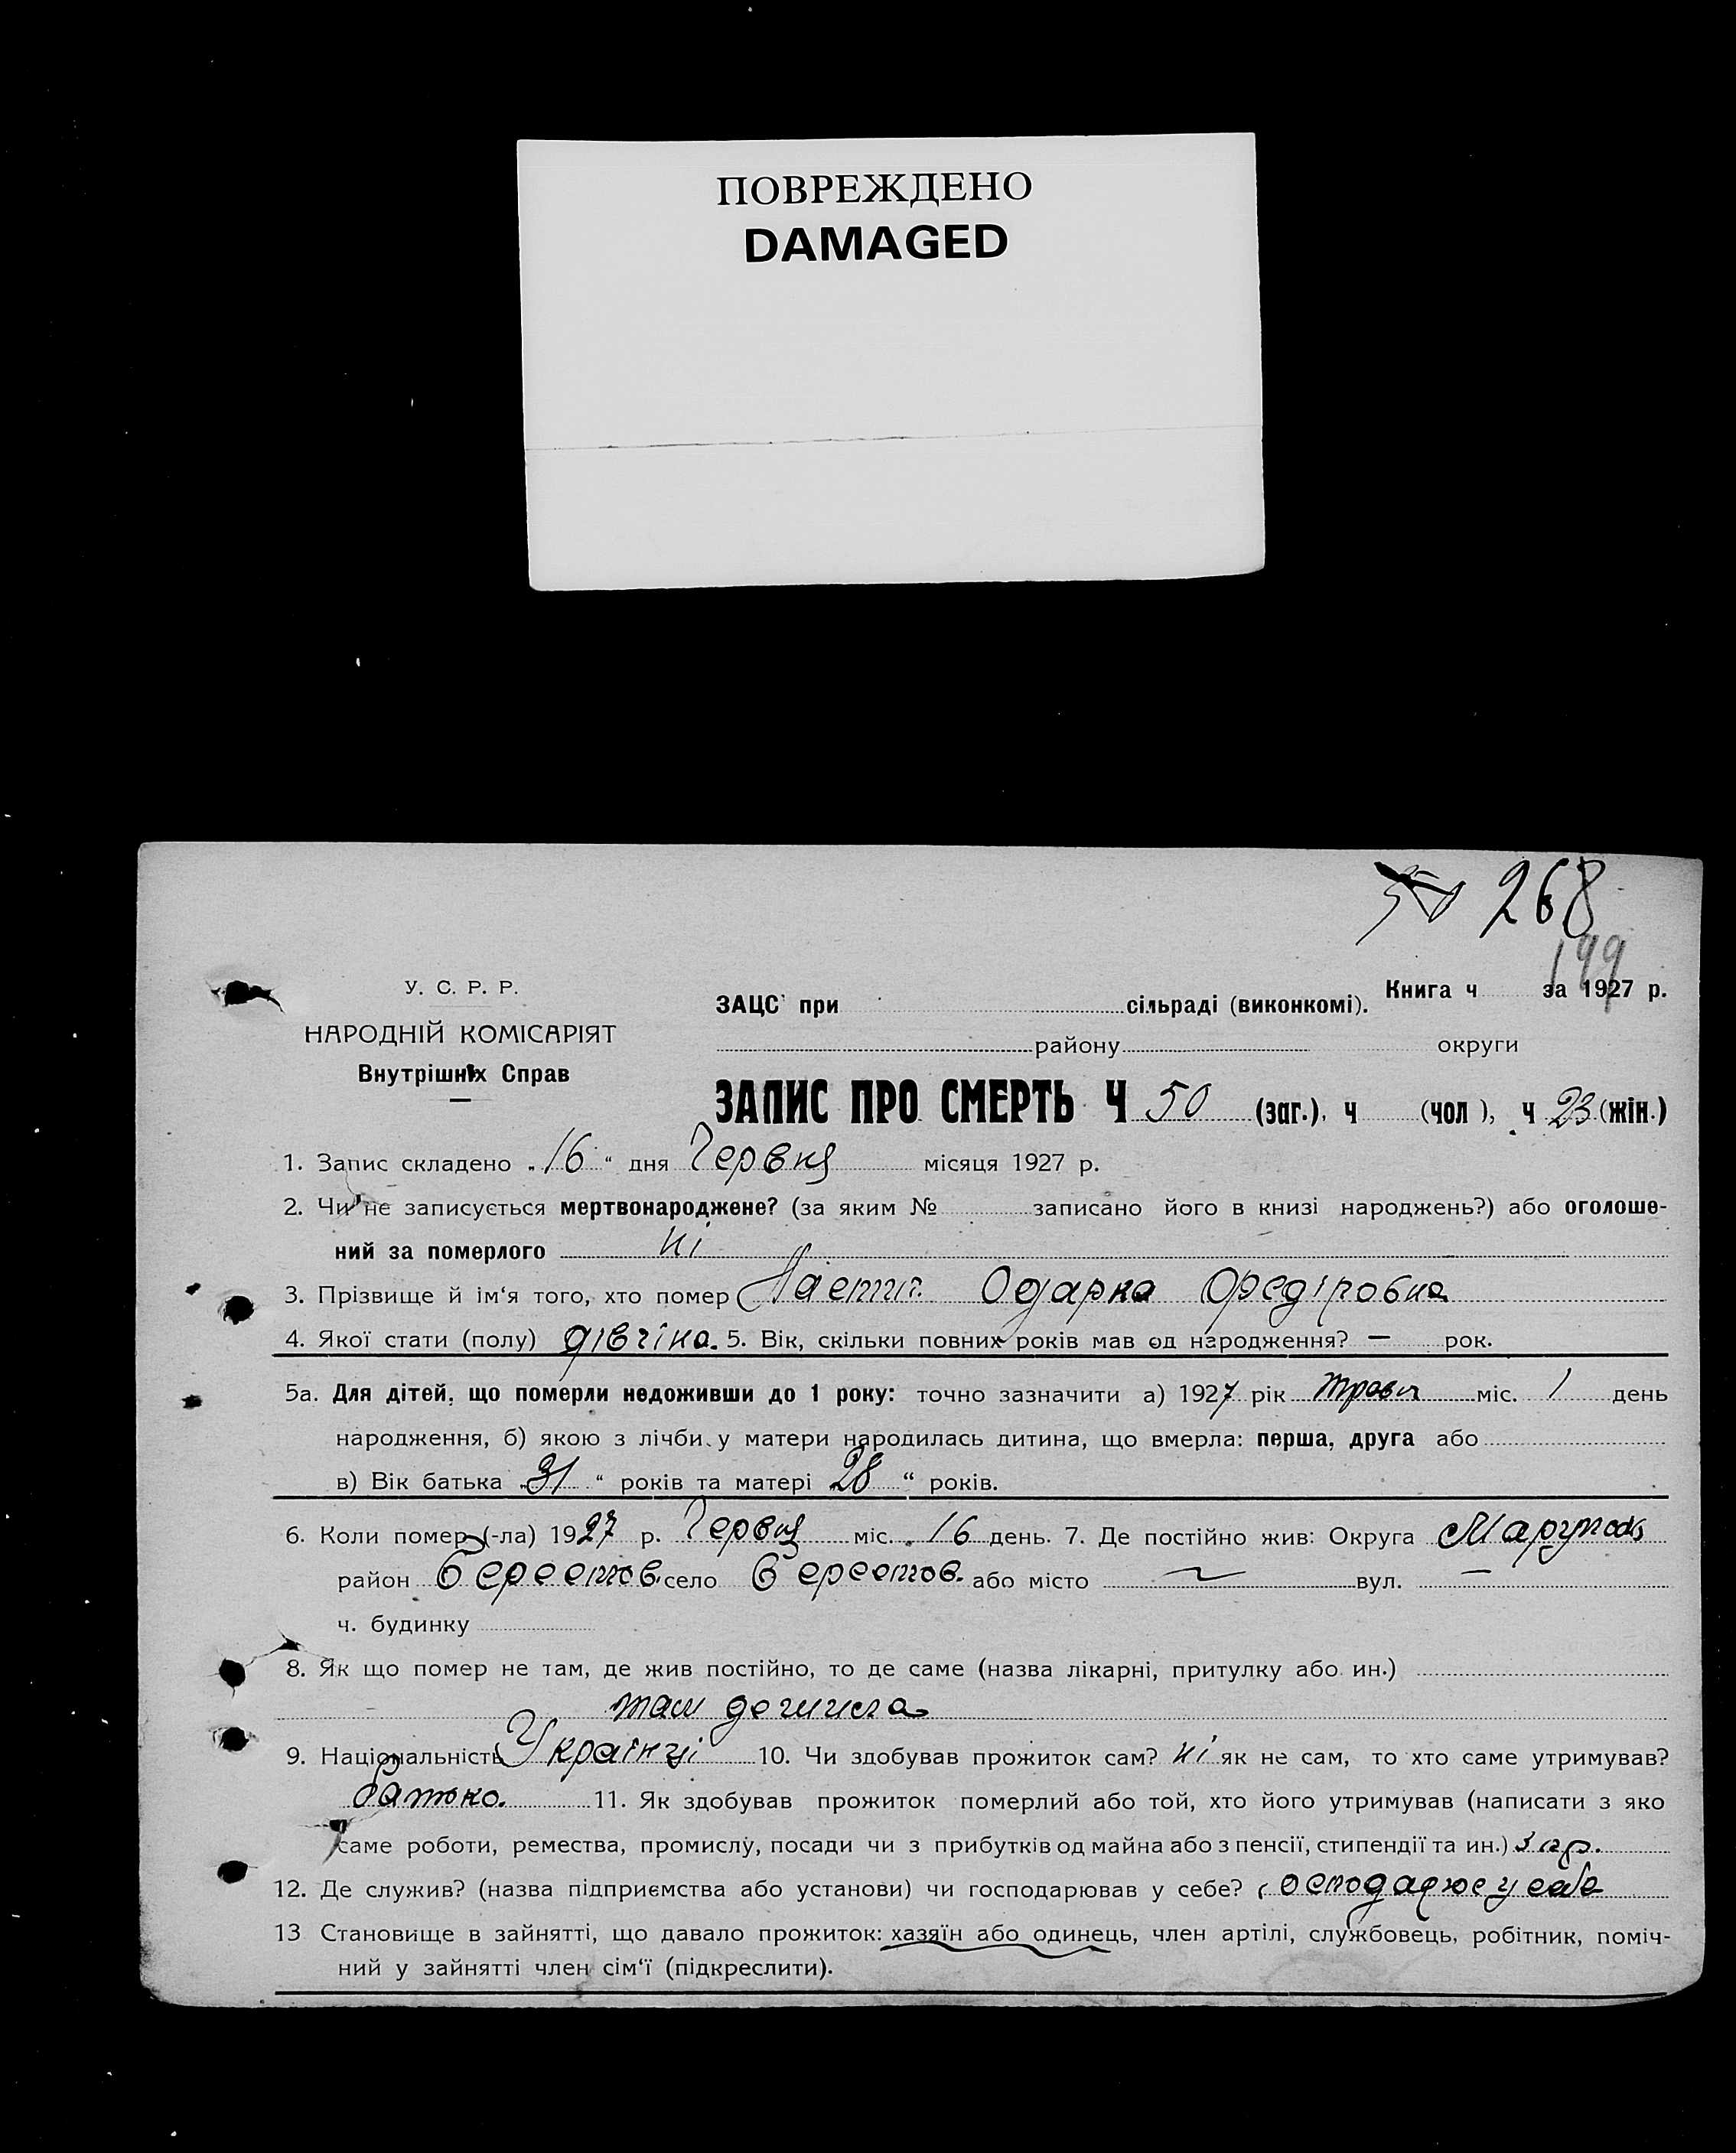 ПОВРЕЖДЕНО
DAMAGED
268
199
У. С. Р. Р.
НАРОДНІЙ КОМІСАРІЯТ
Внутрішніх Справ
Книга ч за 1927 р.
ЗАЦС при сільраді (виконкомі).
району округи
ЗАПИС ПРО СМЕРТЬ Ч 50 (заг.), ч (чол), ч 23 (жін.)
1. Запис складено „16“ дня Червня місяця 1927 р.
2. Чи не записується мертвонароджене? (за яким № записано його в книзі народжень?) або оголоше-
ний за померлого ні
3. Прізвище й ім'я того, хто помер Одарка
4. Якої стати (полу) дівчіна. 5. Вік, скільки повних років мав од народження? — рок.
5а. Для дітей, що померли недоживши до 1 року: точно зазначити а) 1927 рік травн міс. 1 день
народження, б) якою з лічби у матери народилась дитина, що вмерла: перша, друга або
в) Вік батька „31“ років та матері „28“ років.
6. Коли помер (-ла) 1927 р. Червня міс. 16 день. 7. Де постійно жив: Округа
район Берестов. село Берестов. або місто — вул. —
ч. будинку
8. Як що помер не там, де жив постійно, то де саме (назва лікарні, притулку або ин.)
там де жила
9. Національність Українці 10. Чи здобував прожиток сам? ні як не сам, то хто саме утримував?
батько. 11. Як здобував прожиток померлий або той, хто його утримував (написати з яко
саме роботи, ремества, промислу, посади чи з прибутків од майна або з пенсії, стипендії та ин.)
12. Де служив? (назва підприємства або установи) чи господарював у себе? господарює у себе
13 Становище в зайнятті, що давало прожиток: хазяїн або одинець, член артілі, службовець, робітник, поміч-
ний у зайнятті член сім'ї (підкреслити).